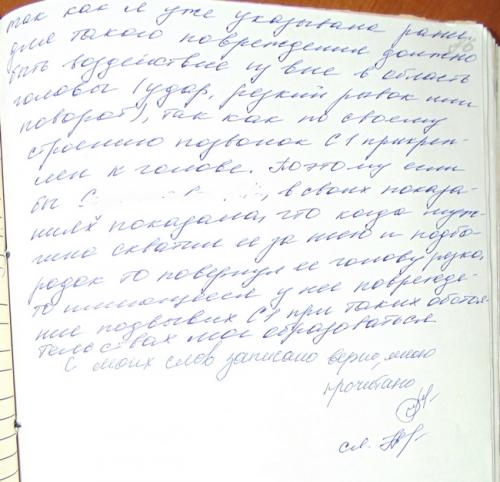 так как я уже указывала ранее
для такого повреждения должно
быть воздействие из вне в область
головы (удар, резкий рывок или
поворот), так как по своему
строению позвонок С1 прикреп-
лен к голове. Поэтому если
бы , в своих показа-
ниях показала, что когда муж-
чина схватил ее за шею и подбо-
родок то повернул ее голову рукой,
то имеющееся у нее поврежде-
ние подвывих С1 при таких обстоя-
тельствах мог образоваться
С моих слов записано верно, мною
прочитано
сл.